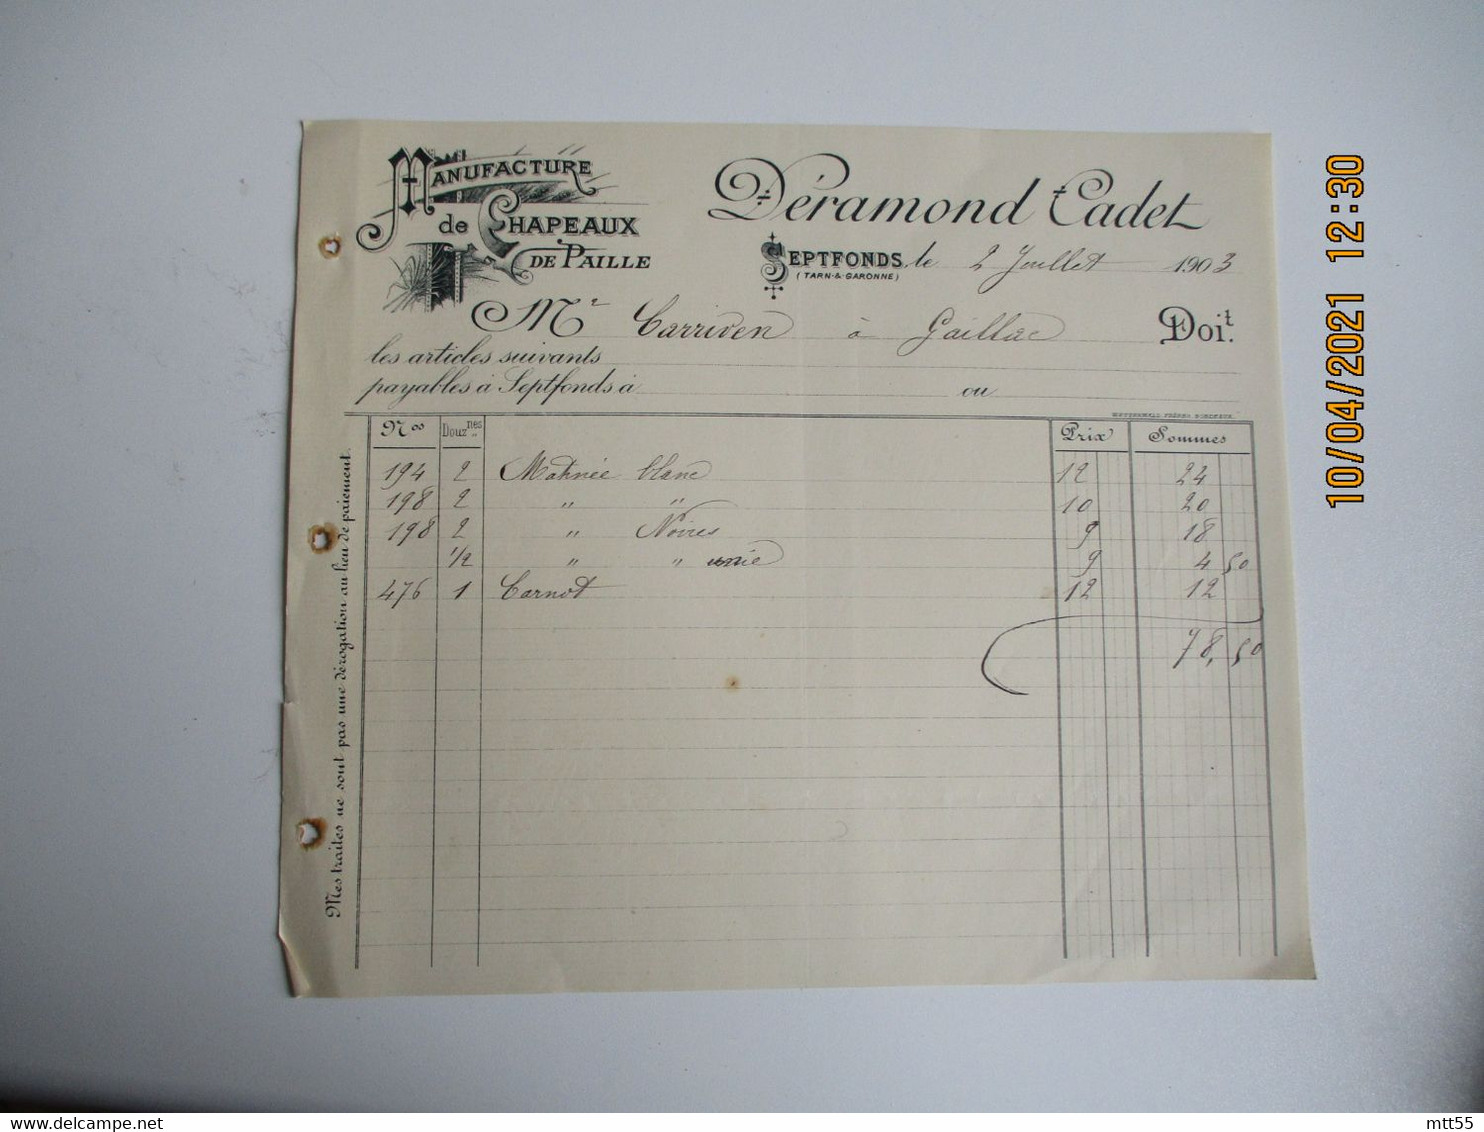 Manufacture
de Chapeaux
de Paille
Déramond Cadet
Septfonds, le 2 Juillet 1903
(Tarn-&-Garonne)
Mr Carriven à Gaillac Doit.
les articles suivants
payables à Septfonds à ou
Nos Douznes Prix Sommes
194 2 Matinée blanc 12 24
198 2 " " 10 20
198 2 " Noires 9 18
1/2 " " unie 9 4 50
476 1 Carnot 12 12
78,50
Mes traites ne sont pas une dérogation au lieu de paiement.
10/04/2021 12:30
mtt55